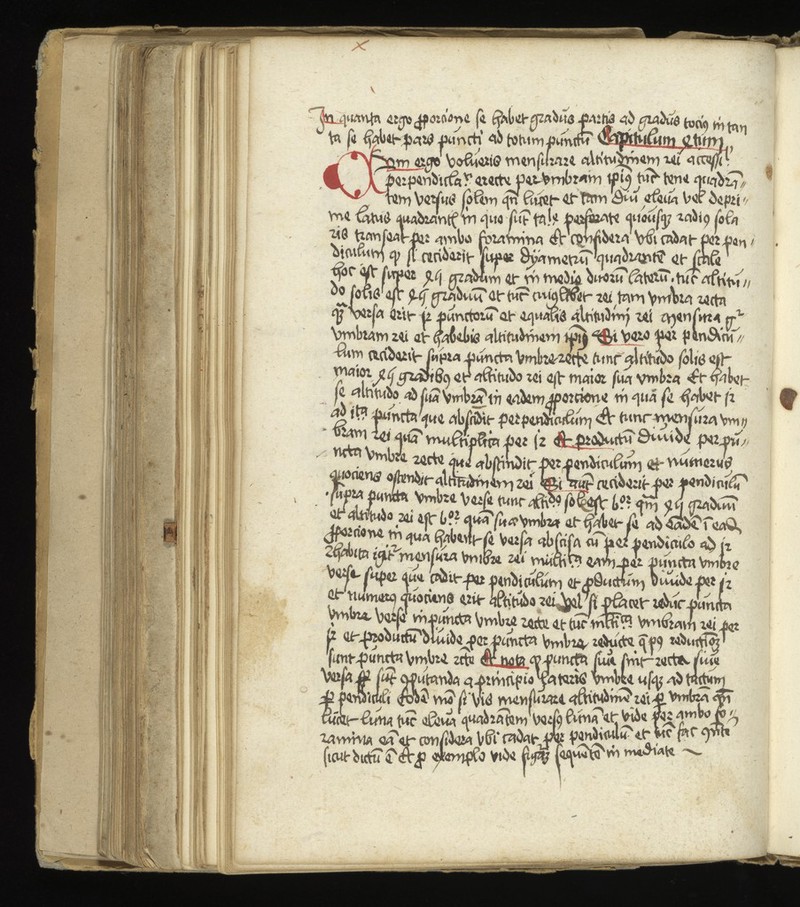 In quanta ergo ꝓporcione se habet gradus partis ad gradus tociꝰ in tan
ta se habet pars puncti ad totum punctū Capitulum
Cum ergo volueris mensurare altitudinem rei
perpendiclaʳ erecte per vmbram ipiꝰ tūc tene quadrā⸗
tem versus solem qn̄ lucet et tam diu eleua vel depri⸗
me latus quadrantꝭ in que sūt perforate quousqꝫ radiꝰ sola
ris transeat per ambo foramina Et considera vbi cadat per pen⸗
diculum ꝙ si ceciderit super dyametrū quadrantē et scale
hoc est super gradum et in medio duorū laterū tūc altitu⸗
do solis est graduū et tūc cuiꝰlibet rei tam vmbra recta
ꝙ̄ versa erit punctorū et equalis altitudini rei mensura gʳ
vmbram rei et habebis altitudinem ipiꝰ Si vero per pendicu⸗
lum ceciderit supra puncta vmbre recte tunc altitudo solis est
maior gradibꝰ et altitudo rei est maior sua vmbra Et habet
se altitudo ad suā vmbrā in eadem ꝓporcione in quā se habet
ad ita puncta que abscidit perpendiculum Et tunc mensura vm⸗
bram rei quā multiplica per Et productū diuide per pu⸗
ncta vmbre recte que abscindit per pendiculum et numerus
quociens ostendit altitudinem rei Si aut̄ ceciderit per pendiculū
supra puncta vmbre verse tunc altidᵒ sol est graduū
et altitudo rei est quā sua vmbra et habet se ad eadē ī ead̄
ꝓporcione in qua habent se versa abscisa cū per pendiculo ad
habita igiʳ mensura vmbre rei multi eam per puncta vmbre
verse super que cadit per pendiculum et ꝓductum diuide per
et numerꝰ quociens erit altitudo rei vel si placet reduc puncta
vmbre verse in puncta vmbre recte et tūc vmbram rei per
et productū diuide per puncta vmbre reducte
sunt puncta vmbre rc̄te Et nota ꝙ puncta siue sint recta siue
versa sūt ꝯputanda a principio lateris vmbre usqꝫ ad tactum
ꝑ pendiculi Eodē mō si vis mensurare altitudinē rei ꝑ vmbrā qn̄
lucet luna tūc eleua quadrātem versꝰ lunā et vide per ambo fo⸗
ramina eā et considera vbi cadat per pendiculū et tūc fac
sicut dictū ē Et ꝓ exemplo vide figᵃꝫ sequētē in mediate